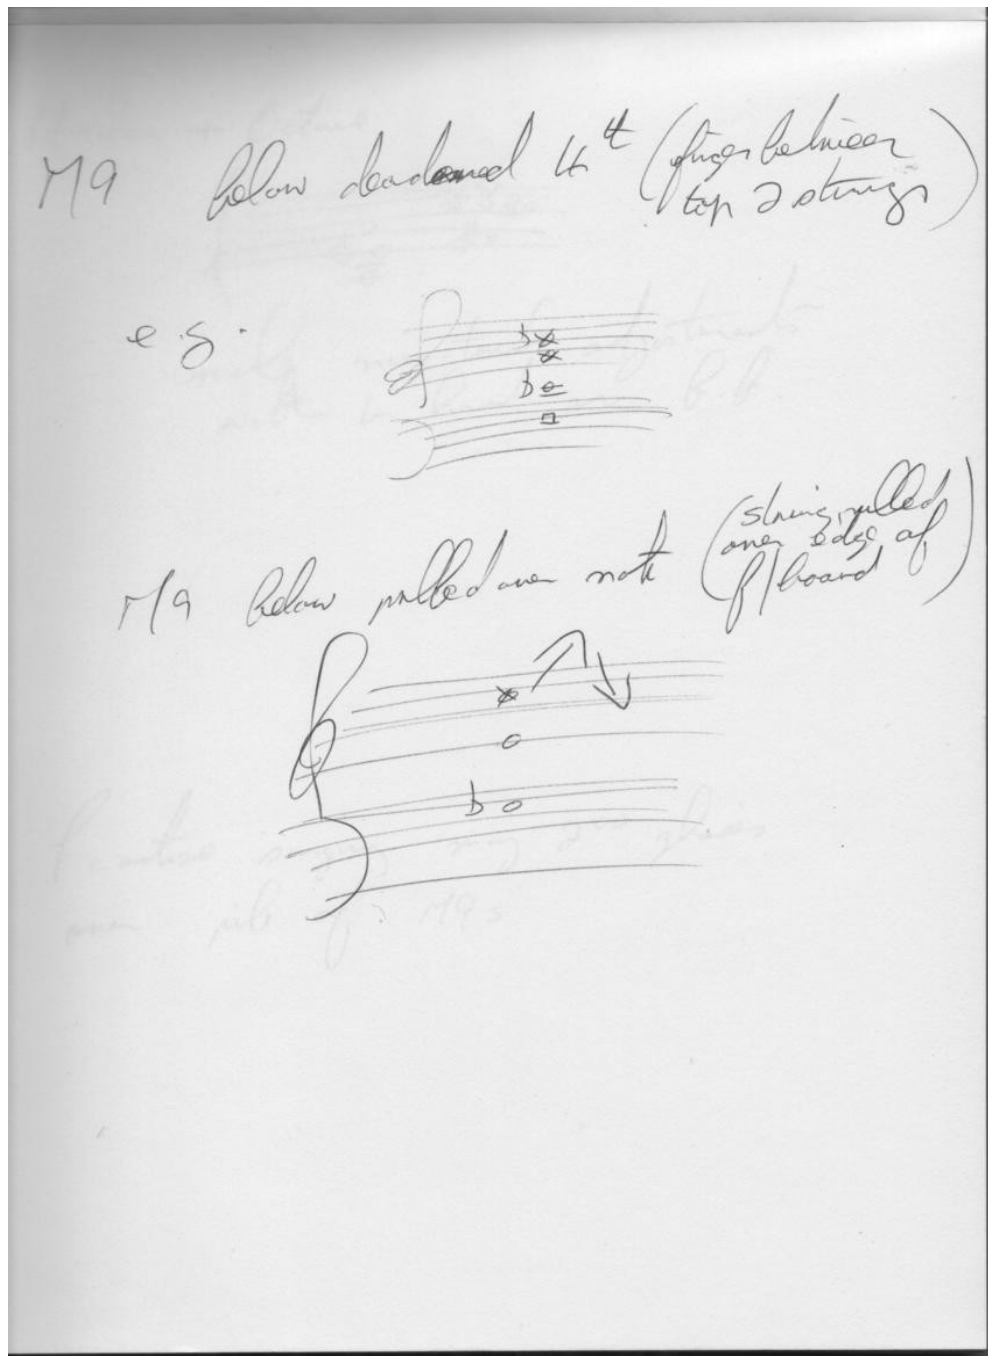 M9 below deadened 4th (finger between
top 2 strings)
e.g.
M9 below pulled over note (string pulled
over edge of
f/board)